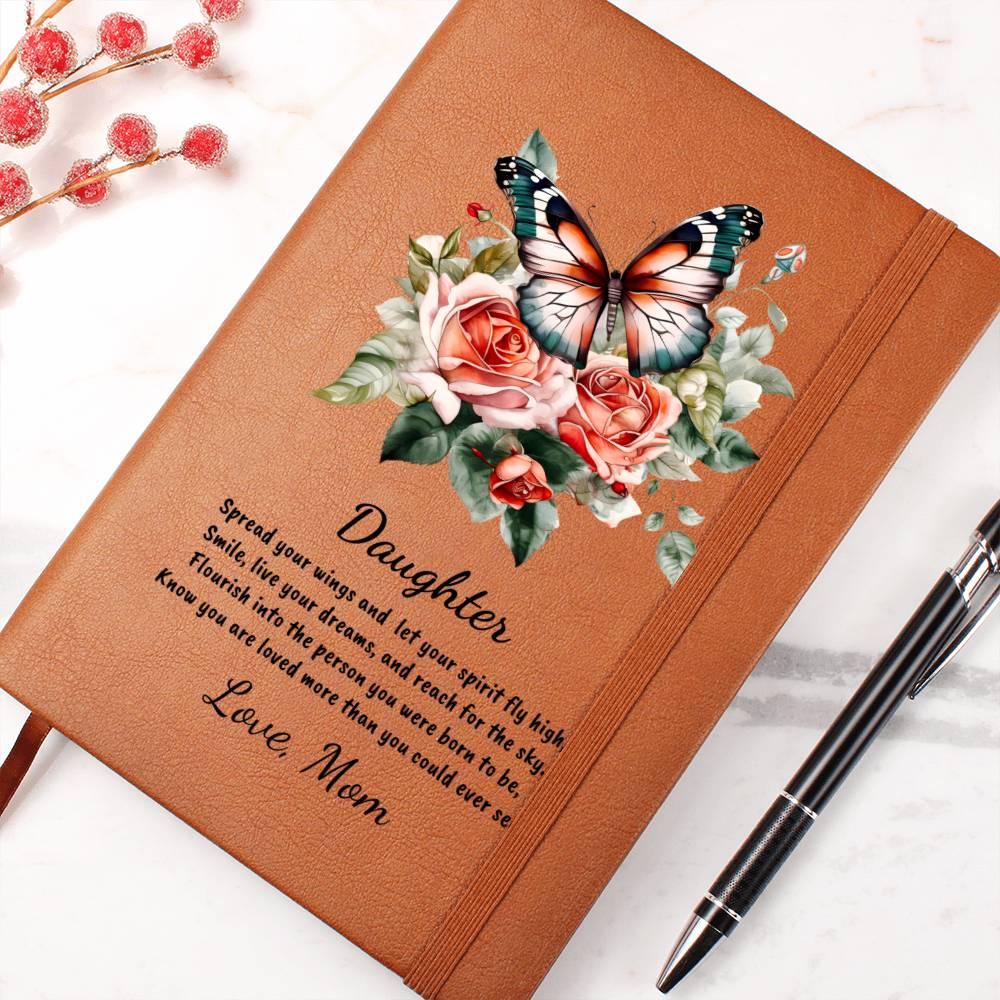 Daughter
Spread your wings and let your spirit fly high,
Smile, live your dreams, and reach for the sky.
Flourish into the person you were born to be,
Know you are loved more than you could ever se
Love, Mom